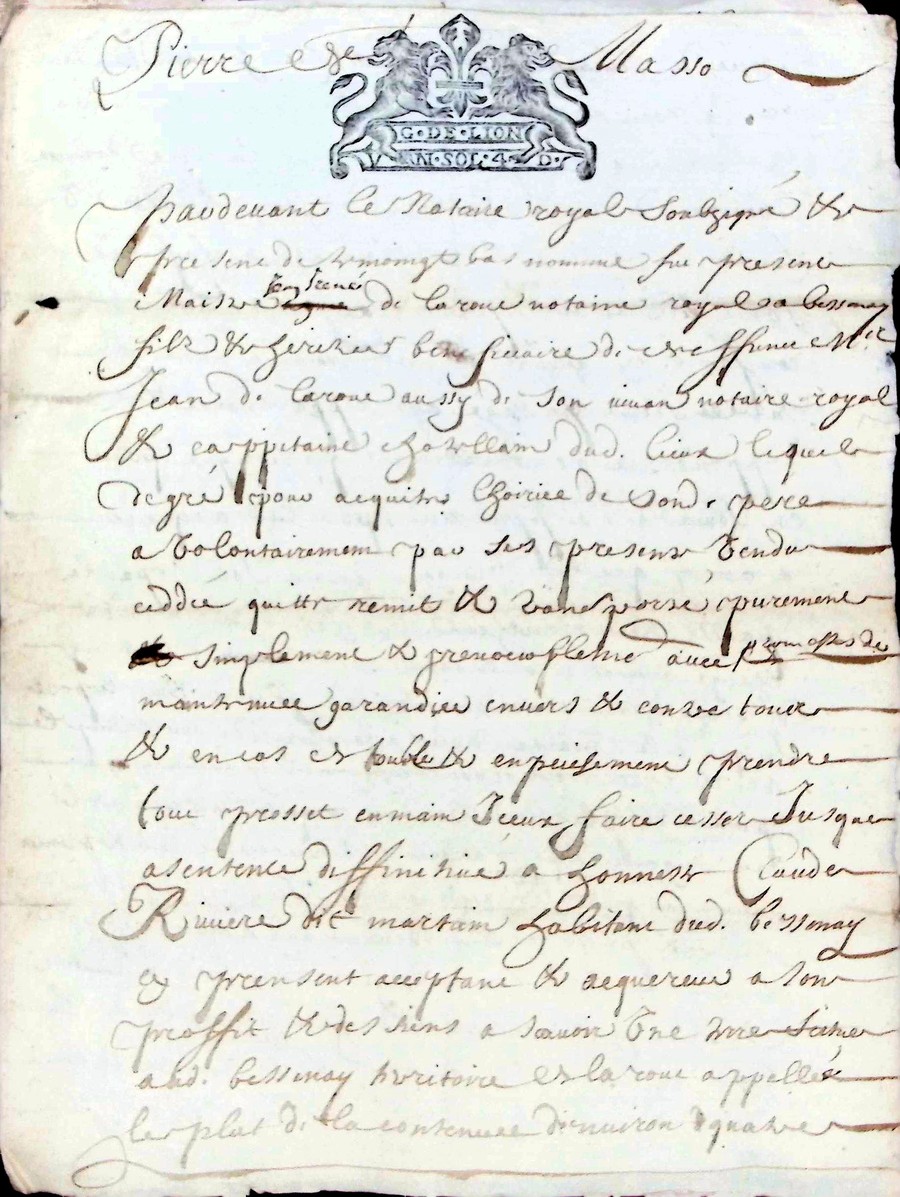 Pierre de Masso
G·DE·LION
VN·SOL·4·D·
Pardevant le Notaire royal soubzigné &
presene de temoingt bas nomme fut present
Maistre de laroue notaire royal a bessenay
filz & heritier beneficiaire de deffunct Mre
Jean de laroue aussy de son vivan notaire royal
& cappitaine chastellain dud. lieux lequel
de gré pour acquiter lhoirie de sond. pere
a volontairement par ses presente vendu
ceddé quitte remit & transporté purement
simplement & avec promesses de
maintenue garandie envers & contre tout
& en cas de trouble & enpeisement prendre
tout prosset en main Jceux faire cesser Jusque
a sentence diffinitive a honneste Claude
Riviere dit martin habitant dud. bessenay
cy prensent acceptant & acquereur a son
proffit & des siens a scavoir Vne terre scituee
aud. bessenay territoire de laroue appellée
le plat de la contenue denviron quatre